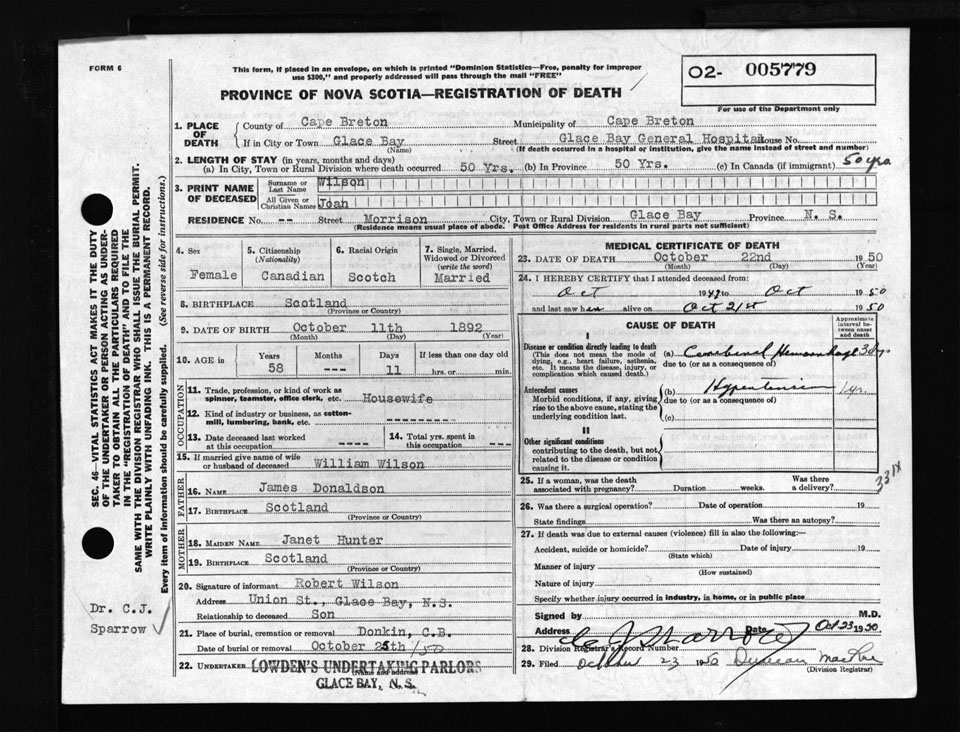 FORM 6
This form, if placed in an envelope, on which is printed "Dominion Statistics—Free, penalty for improper
use $300," and properly addressed will pass through the mail "FREE"
PROVINCE OF NOVA SCOTIA—REGISTRATION OF DEATH
02- 005779
For use of the Department only
1. PLACE OF DEATH
County of Cape Breton Municipality of Cape Breton
If in City or Town Glace Bay Street Glace Bay General Hospital House No.
(Name) (If death occurred in a hospital or institution, give the name instead of street and number)
2. LENGTH OF STAY (in years, months and days)
(a) In City, Town or Rural Division where death occurred 50 Yrs. (b) In Province 50 Yrs. (c) In Canada (if immigrant) 50 yrs
3. PRINT NAME OF DECEASED
Surname or Last Name Wilson
All Given or Christian Names Joan
RESIDENCE No. -- Street Morrison City, Town or Rural Division Glace Bay Province N. S.
(Residence means usual place of abode. Post Office Address for residents in rural parts not sufficient)
4. Sex
Female
5. Citizenship
(Nationality)
Canadian
6. Racial Origin
Scotch
7. Single, Married,
Widowed or Divorced
(write the word)
Married
8. BIRTHPLACE Scotland
(Province or Country)
9. DATE OF BIRTH October 11th 1892
(Month) (Day) (Year)
10. AGE in
Years Months Days If less than one day old
58 --- 11 hrs. or min.
OCCUPATION
11. Trade, profession, or kind of work as
spinner, teamster, office clerk, etc. Housewife
12. Kind of industry or business, as cotton-
mill, lumbering, bank, etc. ---------
13. Date deceased last worked
at this occupation ----
14. Total yrs. spent in
this occupation ----
15. If married give name of wife
or husband of deceased William Wilson
FATHER
16. NAME James Donaldson
17. BIRTHPLACE Scotland
(Province or Country)
MOTHER
18. MAIDEN NAME Janet Hunter
19. BIRTHPLACE Scotland
(Province or Country)
20. Signature of informant Robert Wilson
Address Union St., Glace Bay, N.S.
Relationship to deceased Son
21. Place of burial, cremation or removal Donkin, C.B.
Date of burial or removal October 25th /50
22. UNDERTAKER LOWDEN'S UNDERTAKING PARLORS
(Name and address)
GLACE BAY, N. S.
MEDICAL CERTIFICATE OF DEATH
23. DATE OF DEATH October 22nd 1950
(Month) (Day) (Year)
24. I HEREBY CERTIFY that I attended deceased from:
Oct 19 to Oct 1950
and last saw her alive on Oct 21st 1950
CAUSE OF DEATH
Approximate
interval be-
tween onset
and death
I
Disease or condition directly leading to death
(This does not mean the mode of
dying, e.g., heart failure, asthenia,
etc. It means the disease, injury, or
complication which caused death.)
(a) Cerebral Hemorrhage 3 dys
due to (or as a consequence of)
Antecedent causes
Morbid conditions, if any, giving
rise to the above cause, stating the
underlying condition last.
(b) Hypertension 1 yr
due to (or as a consequence of)
(c)
II
Other significant conditions
contributing to the death, but not
related to the disease or condition
causing it.
331X
25. If a woman, was the death
associated with pregnancy? Duration weeks. Was there
a delivery?
26. Was there a surgical operation? Date of operation 19
State findings Was there an autopsy?
27. If death was due to external causes (violence) fill in also the following:—
Accident, suicide or homicide? Date of injury 19
(State which)
Manner of injury
(How sustained)
Nature of injury
Specify whether injury occurred in industry, in home, or in public place
Signed by M.D.
Address C J Sparrow Date Oct 23 1950
28. Division Registrar's Record Number
29. Filed October 23 1950 Duncan
(Division Registrar)
SEC. 46—VITAL STATISTICS ACT MAKES IT THE DUTY
OF THE UNDERTAKER OR PERSON ACTING AS UNDER-
TAKER TO OBTAIN ALL THE PARTICULARS REQUIRED
IN THE "REGISTRATION OF DEATH" AND TO FILE THE
SAME WITH THE DIVISION REGISTRAR WHO SHALL ISSUE THE BURIAL PERMIT.
WRITE PLAINLY WITH UNFADING INK. THIS IS A PERMANENT RECORD.
Every item of information should be carefully supplied. (See reverse side for instructions.)
Dr. C.J.
Sparrow